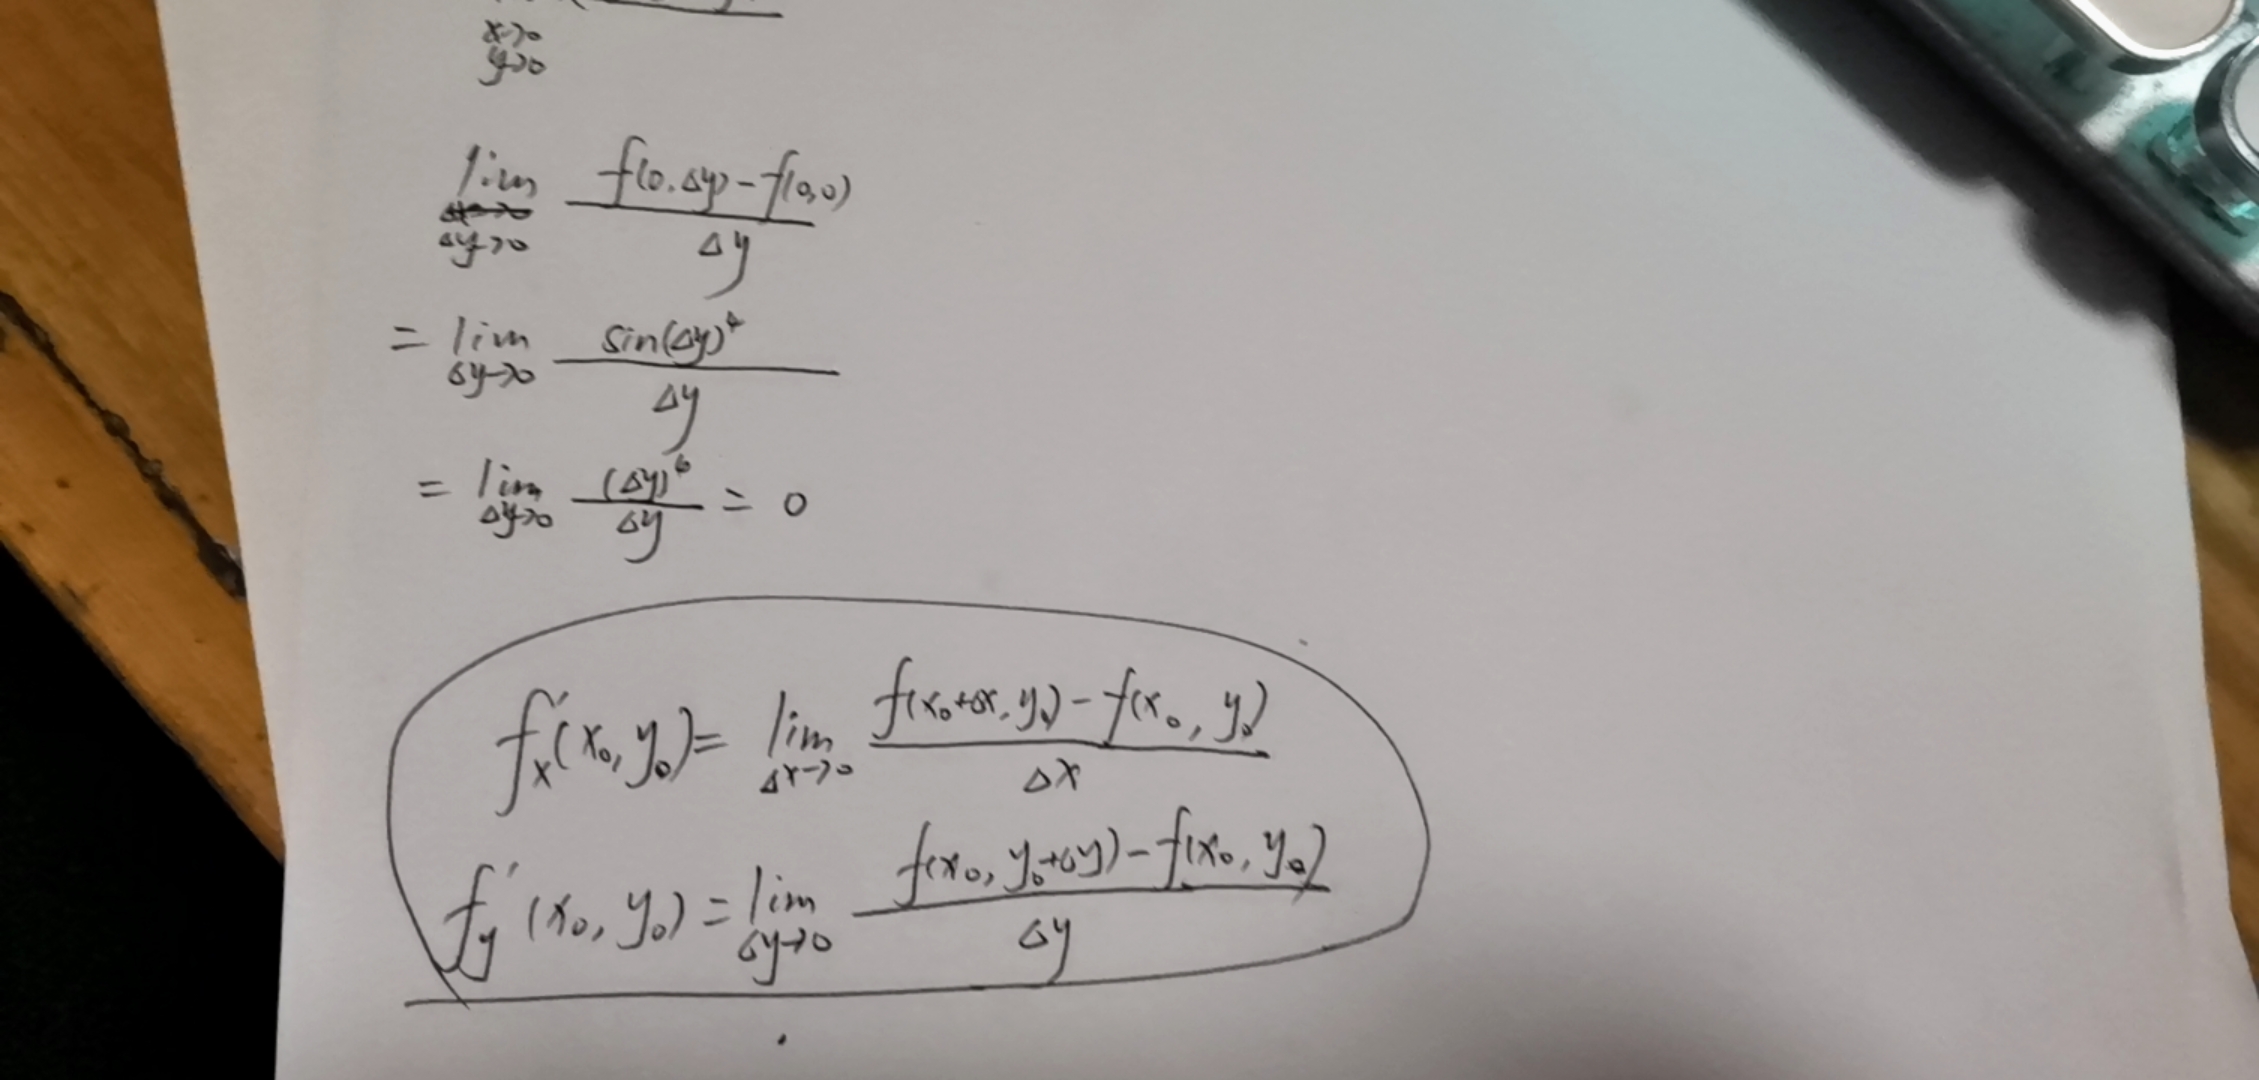 x→0
y→0
lim Δy→0 f(0,Δy)-f(0,0) / Δy
= lim Δy→0 sin(Δy)⁴ / Δy
= lim Δy→0 (Δy)⁶ / Δy = 0
f'ₓ(x₀,y₀)= lim Δx→0 f(x₀+Δx,y₀)-f(x₀,y₀) / Δx
f'y(x₀,y₀)= lim Δy→0 f(x₀,y₀+Δy)-f(x₀,y₀) / Δy